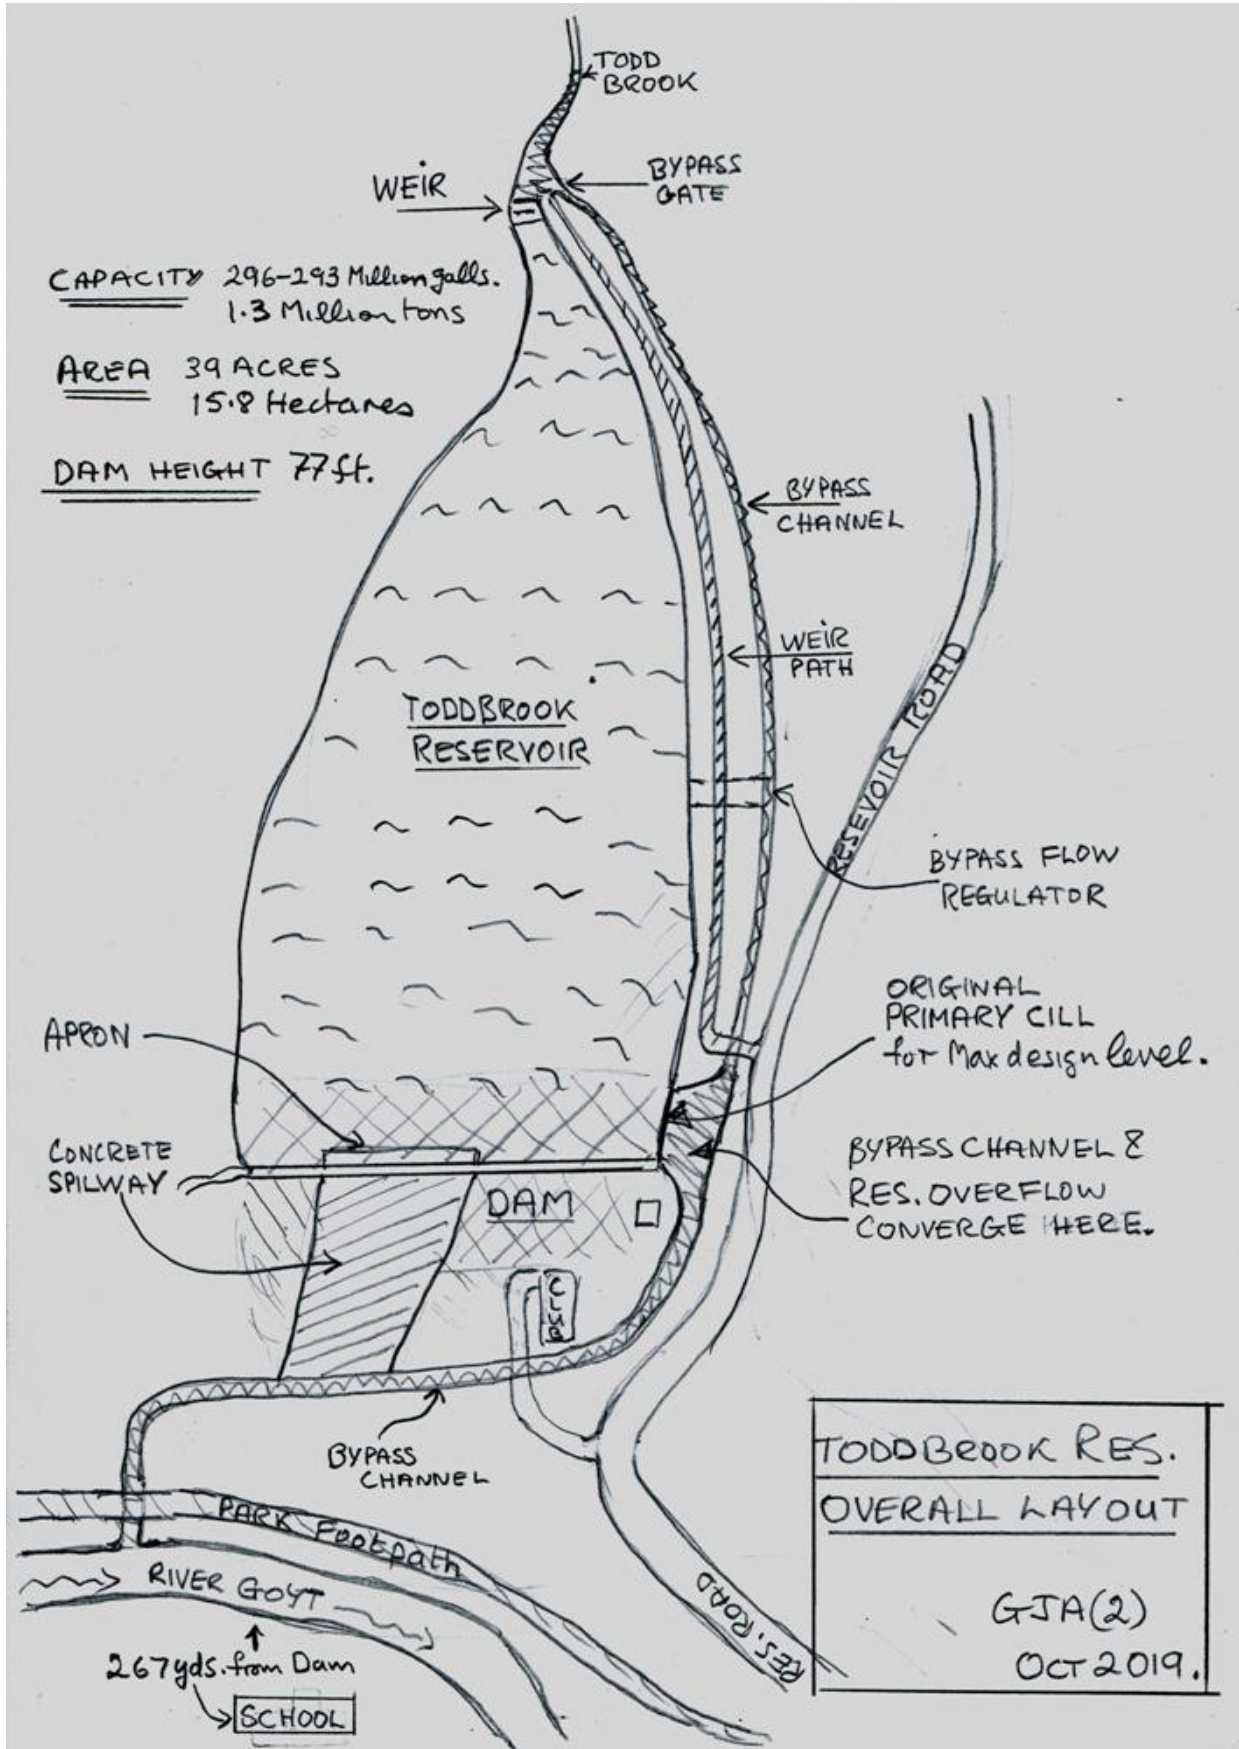 TODD
BROOK
BYPASS
GATE
WEIR
CAPACITY 296-293 Million galls.
1.3 Million tons
AREA 39 ACRES
15.8 Hectares
DAM HEIGHT 77ft.
BYPASS
CHANNEL
WEIR
PATH
RESEVOIR ROAD
TODDBROOK
RESERVOIR
BYPASS FLOW
REGULATOR
ORIGINAL
PRIMARY CILL
for Max design level.
APRON
CONCRETE
SPILWAY
BYPASS CHANNEL &
RES. OVERFLOW
CONVERGE HERE.
DAM
CLUB
BYPASS
CHANNEL
PARK Footpath
RIVER GOYT
267yds. from Dam
SCHOOL
RES. ROAD
TODDBROOK RES.
OVERALL LAYOUT
GJA(2)
OCT 2019.